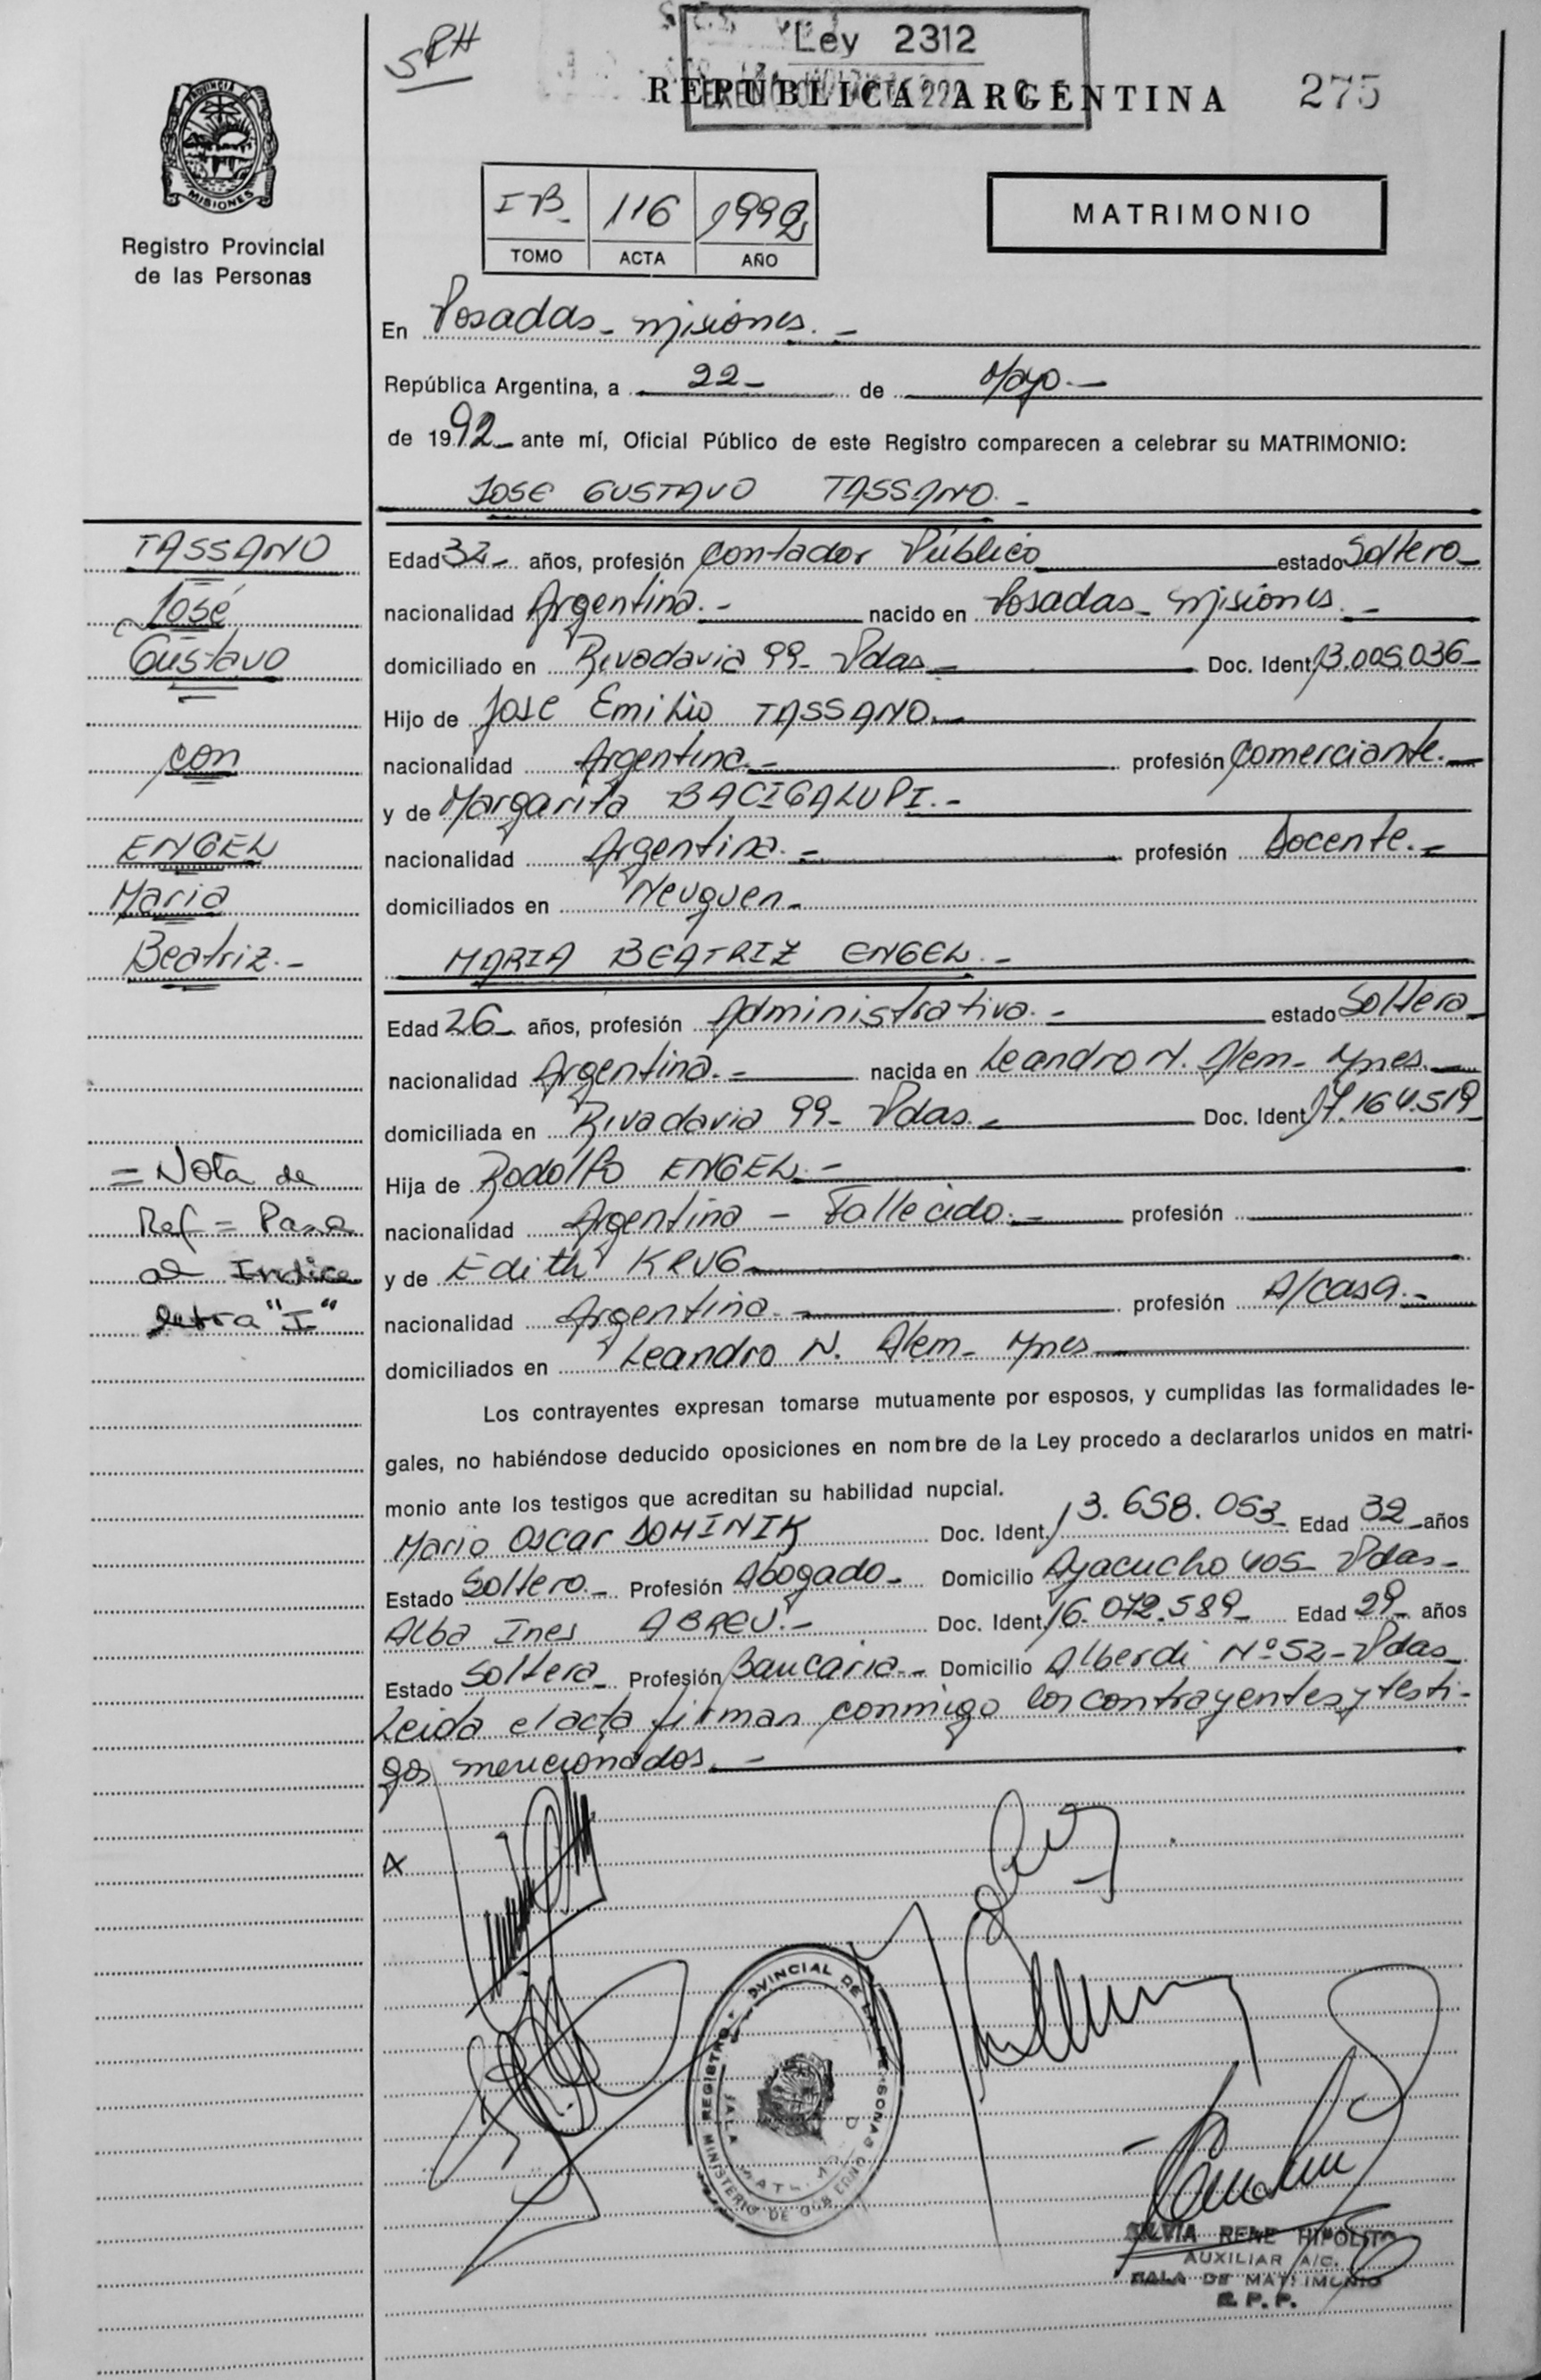 SRH
Ley 2312
REPUBLICA ARGENTINA
275
PROVINCIA DE
MISIONES
Registro Provincial
de las Personas
IB- 116 1992
TOMO ACTA AÑO
MATRIMONIO
En Posadas - Misiones. -
República Argentina, a 22- de Mayo. -
de 1992 - ante mí, Oficial Público de este Registro comparecen a celebrar su MATRIMONIO:
JOSE GUSTAVO TASSANO. -
TASSANO
José
Gustavo
con
ENGEL
Maria
Beatriz. -
Edad 32- años, profesión Contador Público estado Soltero -
nacionalidad Argentina. - nacido en Posadas - Misiones. -
domiciliado en Rivadavia 99 - Pdas - Doc. Ident. 13.005.036 -
Hijo de José Emilio TASSANO. -
nacionalidad Argentina. - profesión Comerciante. -
y de Margarita BACIGALUPI. -
nacionalidad Argentina. - profesión Docente. -
domiciliados en Neuquen -
MARIA BEATRIZ ENGEL. -
Edad 26 - años, profesión Administrativa. - estado Soltera -
nacionalidad Argentina. - nacida en Leandro N. Alem - Mnes. -
domiciliada en Rivadavia 99 - Pdas. - Doc. Ident. 17.164.519
Hija de Rodolfo ENGEL. -
nacionalidad Argentina - Fallecido. - profesión
y de Edith KRUG
nacionalidad Argentina. - profesión A/casa. -
domiciliados en Leandro N. Alem - Mnes
= Nota de
Ref = Pasa
al Indice
letra "I"
Los contrayentes expresan tomarse mutuamente por esposos, y cumplidas las formalidades le-
gales, no habiéndose deducido oposiciones en nombre de la Ley procedo a declararlos unidos en matri-
monio ante los testigos que acreditan su habilidad nupcial.
Mario Oscar DOMINIK Doc. Ident. 13.658.053 - Edad 32 - años
Estado Soltero. - Profesión Abogado - Domicilio Ayacucho 405 - Pdas -
Alba Ines ABREU. - Doc. Ident. 16.072.589 - Edad 29 - años
Estado Soltera - Profesión Bancaria. - Domicilio Alberdi Nº 52 - Pdas -
Leida el acta firman conmigo los contrayentes y testi-
gos mencionados. -
REGISTRO PROVINCIAL DE LAS PERSONAS
MINISTERIO DE GOBIERNO
SALA
SILVIA RENE HIPOLITO
AUXILIAR A/C.
SALA DE MATRIMONIO
R. P. P.